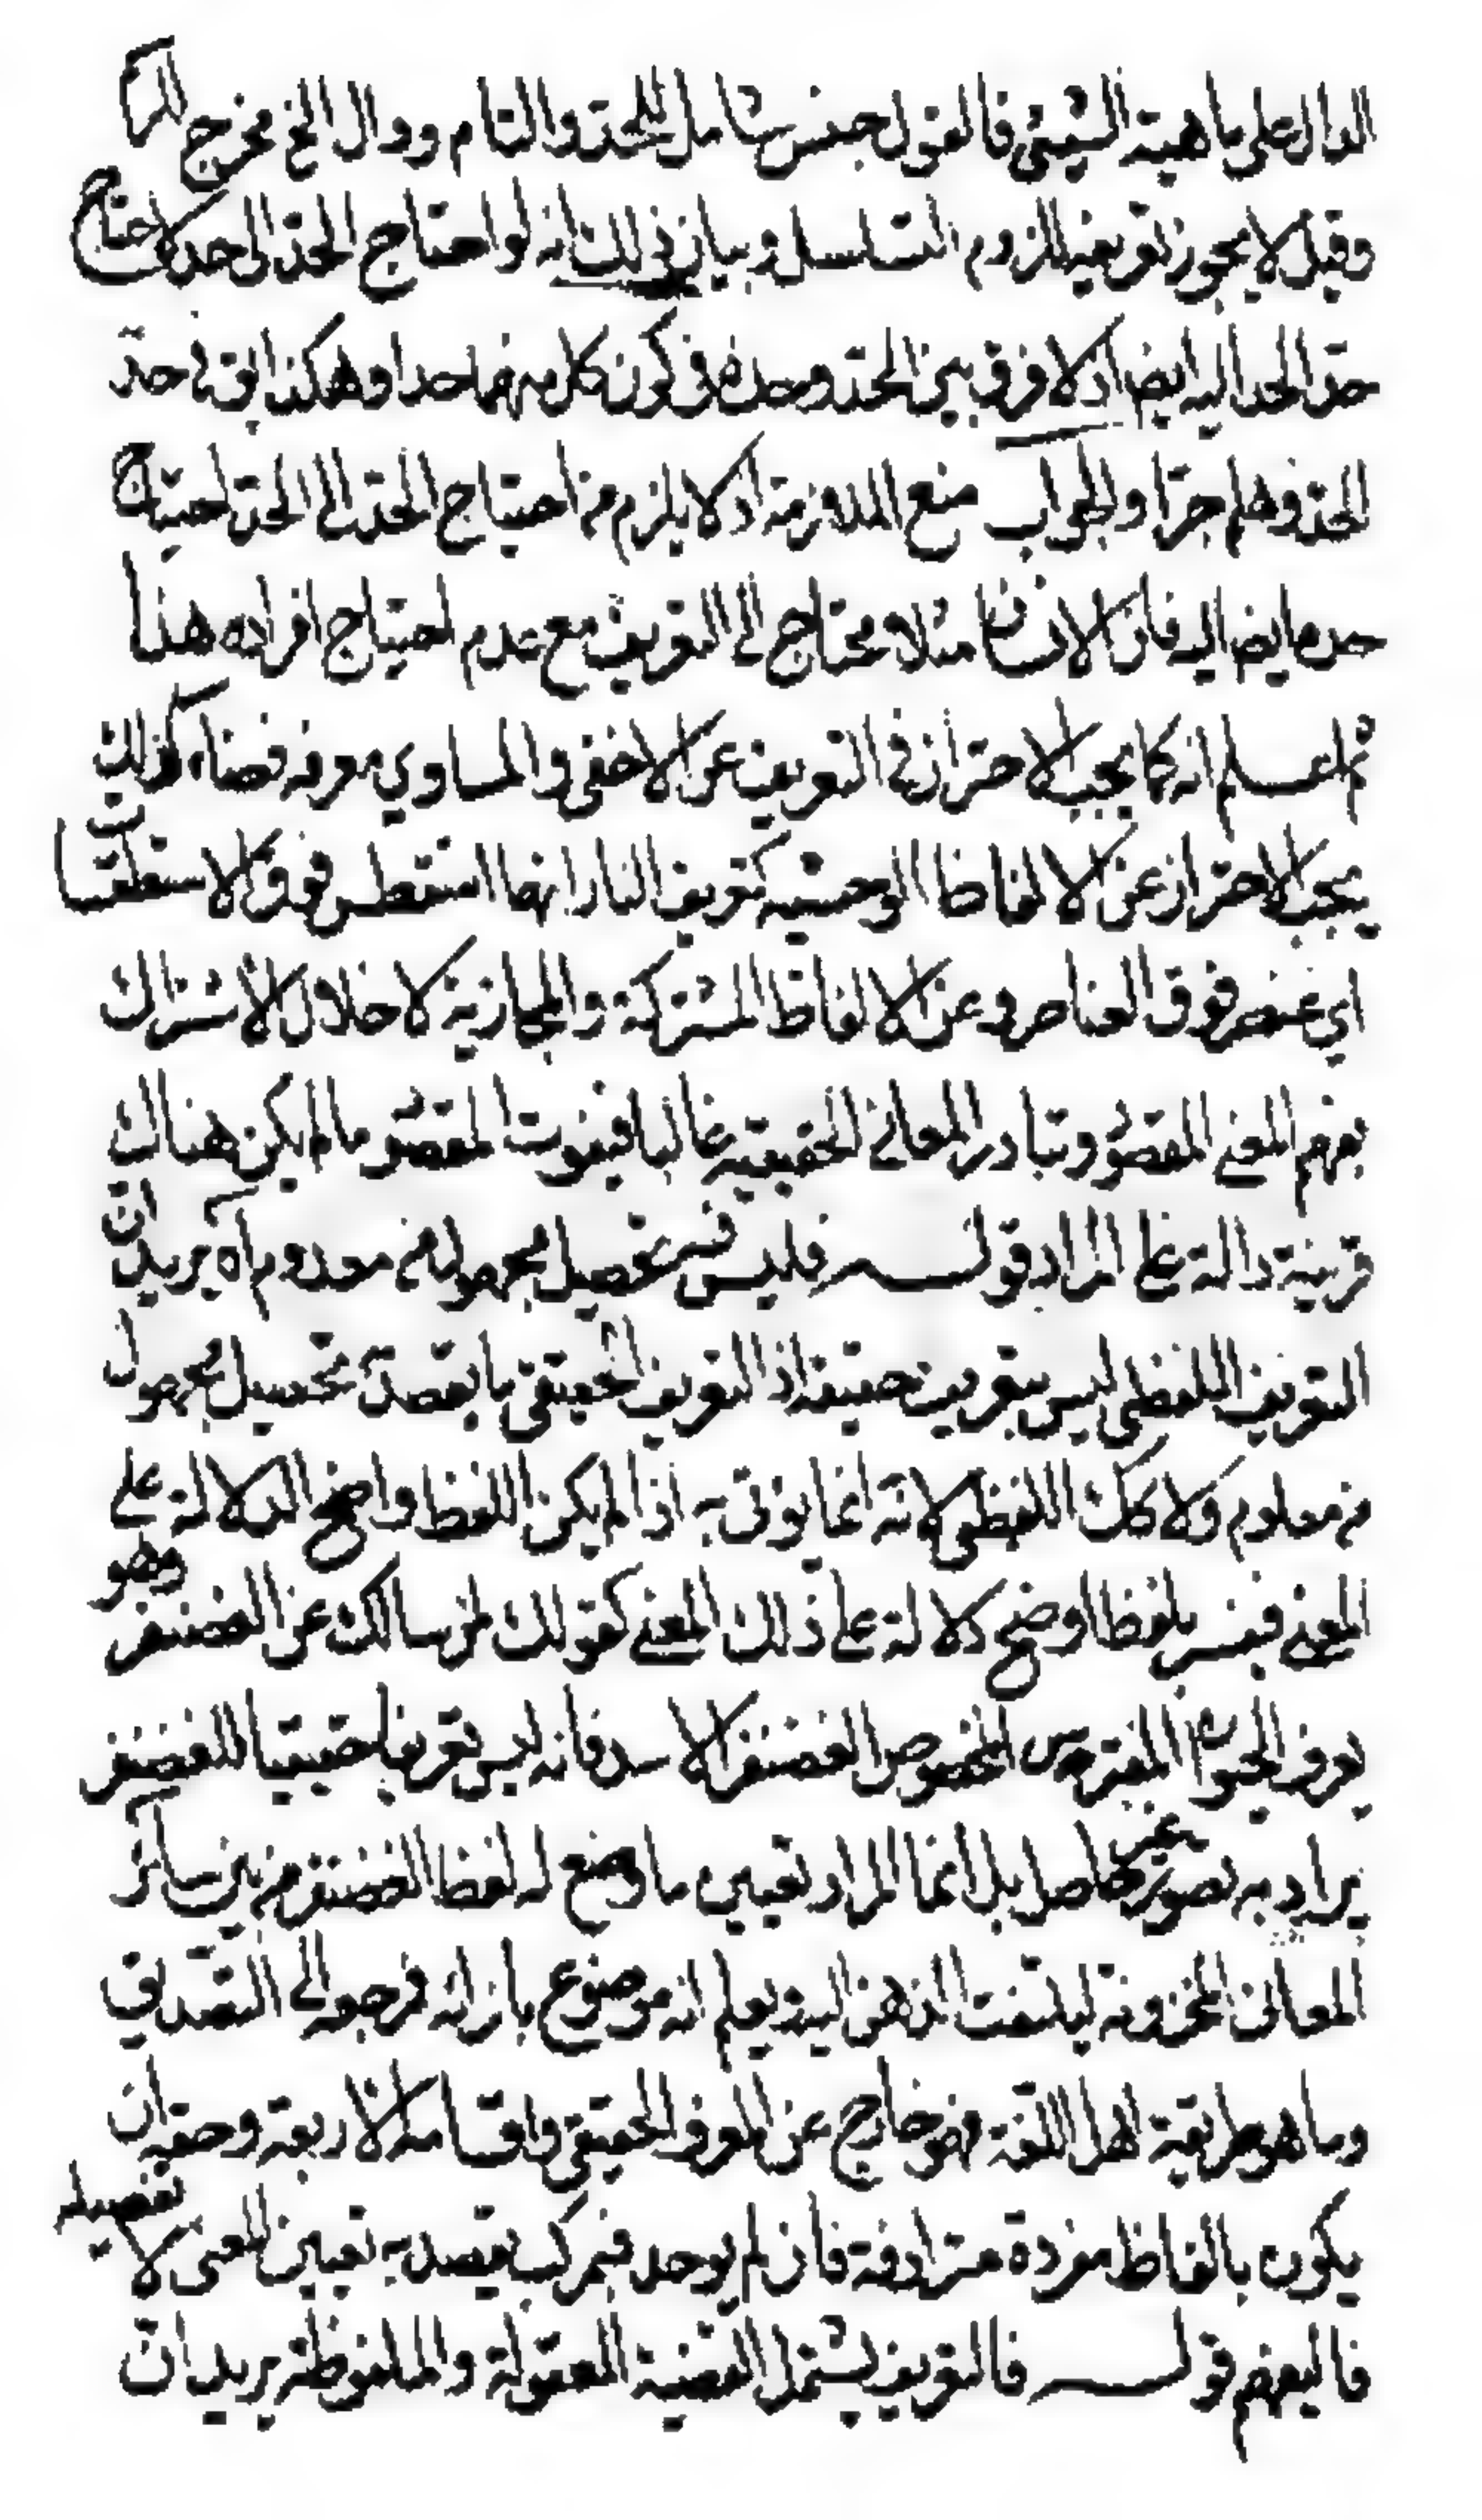 الدال على ماهية الشيئ فالقول جنس شامل للحد والتام ودال الخ مخرج
وقيل لا يجوز تعريفه للزوم التسلسل وبيان ذلك انه لو احتاج الحد الى حد لاحتاج
حد الحد اليه ايضا اذ لا فرق بين الحد وحده في كون كل منهما حدا وهكذا يق في حد
الحد وهلم جرا والجواب منع الملازمة اذ لا يلزم من احتياج الحد الى الحد احتياج
حده ايضا اليه فان الانسان مثلا محتاج الى التعريف مع عدم احتياج افراده هذا
ثم اعلم انه كما يجب الاحتراز في التعريف عن الاخفى والمساوي معرفة فصناعة كذلك
يجب الاحتراز عن الالفاظ الوحشيه كتعريف النار انها اسطقس فوق الاسطقسات
اي عنصر فوق العناصر وعن الالفاظ المشتركة والمجازية لاخلال الاشتراك
بفهم المعنى المقصود وتبادر المعاني الحقيقيه غالبا فيفوت المقصود ما لم يكن هناك
قرينة دالة على المراد قولـــه فليس فيه تحصيل مجهول من معدوم اه يريد ان
التعريف اللفظي ليس بتعريف حقيقة اذ التعريف الحقيقي ما يقصد به تحصيل مجهول
من معلوم ولا كك اللفظي لانه انما يؤتى به اذا لم يكن اللفظ واضح الدلالة على
المعنى فيفسر بلفظ اوضح دلالة على ذلك المعنى كقولك لمن سالك عن الغضنفر وهو
يعرف الحيوان المفترس المخصوص الغضنفر الاسد فانه ليس تعريفا حقيقيا للغضنفر
يراد به تصور غير حاصل بل انما المراد تعيين ما وضع له لفظ الغضنفر من بين سائر
المعاني المخزونة ليلتفت الذهن اليه ويعلم انه موضوع بازائه فرجع الى التصديق
وما هو طريقة اهل اللغة فهو خارج عن المعرف الحقيقي واقسامه الاربعة وحقه ان
يكون بالفاظ مفردة مترادفة فان لم يوجد فمركب يقصد به تعيين المعنى لا تفصيله
فاليفهم قولـــه فالتعريف يشمل القضية المعقولة والملفوظة يريد ان